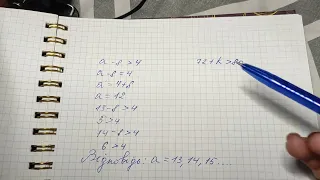 a - 8 > 4
a - 8 = 4
a = 4+8
a = 12
13 - 8 > 4
5 > 4
14 - 8 > 4
6 > 4
Відповідь: a = 13, 14, 15 ....
72 + k > 80